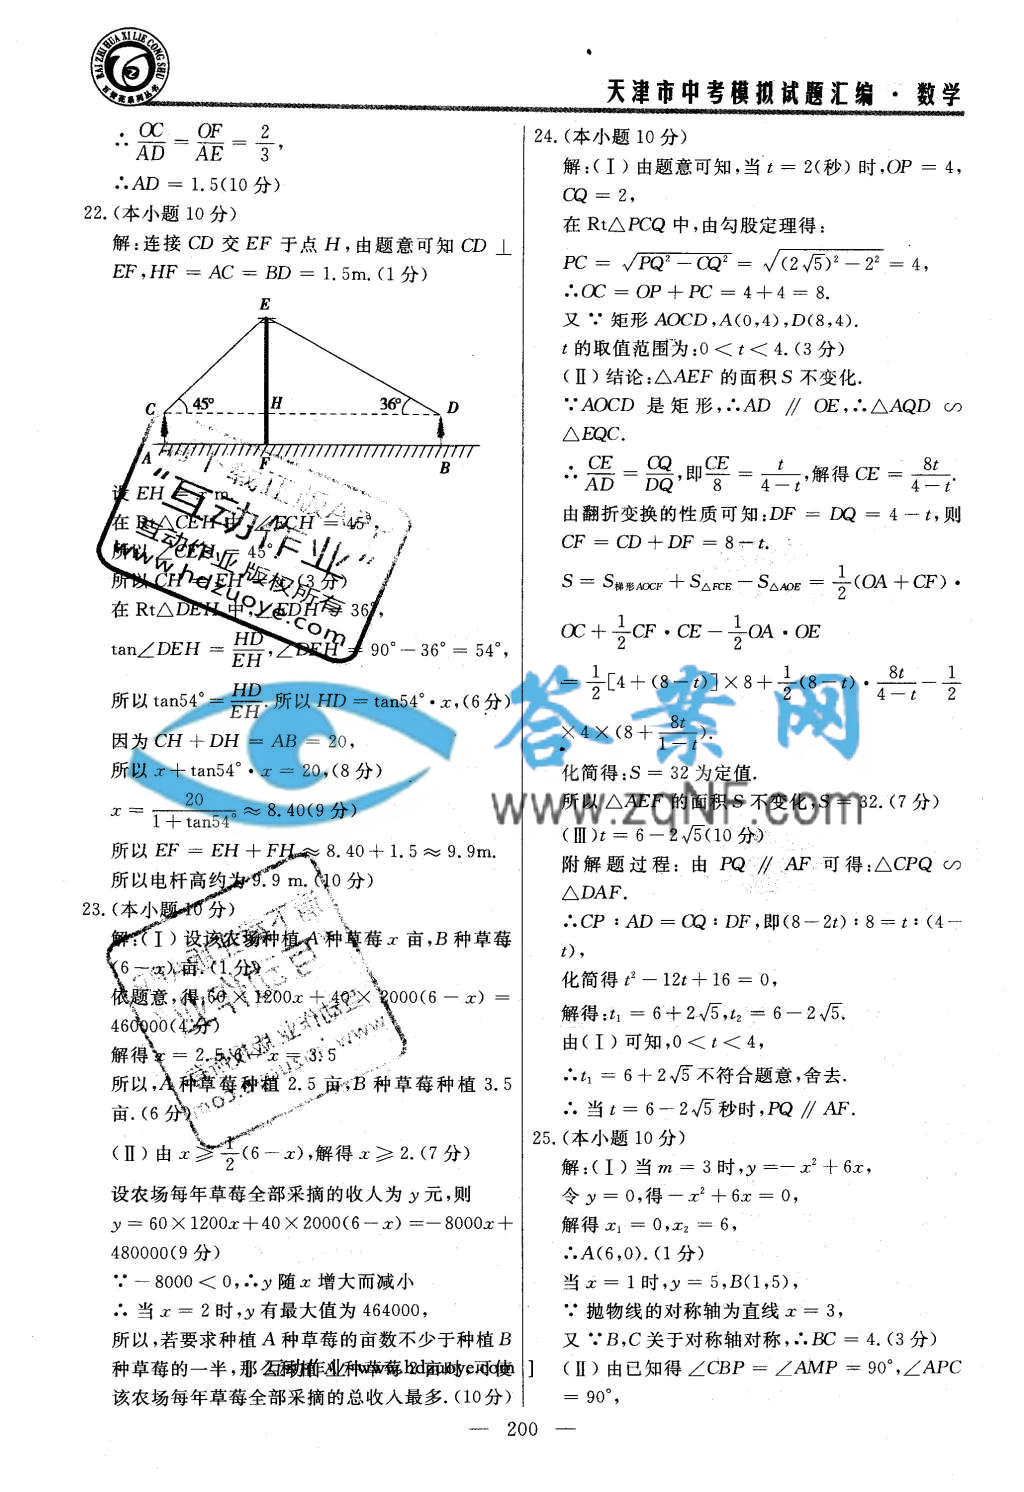 BAI ZHI HUA XI LIE CONG SHU
天津市中考模拟试题汇编·数学
∴OC/AD=OF/AE=2/3,
∴AD=1.5(10分)
22.(本小题10分)
解:连接CD交EF于点H,由题意可知CD⊥
EF,HF=AC=BD=1.5m.(1分)
E
C 45° H 36° D
A F B
设EH=x m,
在Rt△CEH中,∠ECH=45°,
所以∠CEH=45°
所以CH=EH=x(3分)
在Rt△DEH中,∠EDH=36°,
tan∠DEH=HD/EH,∠DEH=90°-36°=54°,
所以tan54°=HD/EH.所以HD=tan54°·x,(6分)
因为CH+DH=AB=20,
所以x+tan54°·x=20,(8分)
x=20/(1+tan54°)≈8.40(9分)
所以EF=EH+FH≈8.40+1.5≈9.9m.
所以电杆高约为9.9 m.(10分)
23.(本小题10分)
解:(Ⅰ)设该农场种植A种草莓x亩,B种草莓
(6-x)亩.(1分)
依题意,得:60×1200x+40×2000(6-x)=
460000(4分)
解得x=2.5,6-x=3.5
所以,A种草莓种植2.5亩,B种草莓种植3.5
亩.(6分)
(Ⅱ)由x≥1/2(6-x),解得x≥2.(7分)
设农场每年草莓全部采摘的收人为y元,则
y=60×1200x+40×2000(6-x)=-8000x+
480000(9分)
∵-8000<0,∴y随x增大而减小
∴当x=2时,y有最大值为464000,
所以,若要求种植A种草莓的亩数不少于种植B
种草莓的一半,那么种植A种草莓2亩时,可使
该农场每年草莓全部采摘的总收人最多.(10分)
24.(本小题10分)
解:(Ⅰ)由题意可知,当t=2(秒)时,OP=4,
CQ=2,
在Rt△PCQ中,由勾股定理得:
PC=√(PQ²-CQ²)=√((2√5)²-2²)=4,
∴OC=OP+PC=4+4=8.
又∵矩形AOCD,A(0,4),D(8,4).
t的取值范围为:0<t<4.(3分)
(Ⅱ)结论:△AEF的面积S不变化.
∵AOCD是矩形,∴AD∥OE,∴△AQD∽
△EQC.
∴CE/AD=CQ/DQ,即CE/8=t/(4-t),解得CE=8t/(4-t).
由翻折变换的性质可知:DF=DQ=4-t,则
CF=CD+DF=8-t.
S=S梯形AOCF+S△FCE-S△AOE=1/2(OA+CF)·
OC+1/2CF·CE-1/2OA·OE
=1/2[4+(8-t)]×8+1/2(8-t)·8t/(4-t)-1/2
×4×(8+8t/(1-t)).
化简得:S=32为定值.
所以△AEF的面积S不变化,S=32.(7分)
(Ⅲ)t=6-2√5(10分)
附解题过程:由PQ∥AF可得:△CPQ∽
△DAF.
∴CP:AD=CQ:DF,即(8-2t):8=t:(4-
t),
化简得t²-12t+16=0,
解得:t₁=6+2√5,t₂=6-2√5.
由(Ⅰ)可知,0<t<4,
∴t₁=6+2√5不符合题意,舍去.
∴当t=6-2√5秒时,PQ∥AF.
25.(本小题10分)
解:(Ⅰ)当m=3时,y=-x²+6x,
令y=0,得-x²+6x=0,
解得x₁=0,x₂=6,
∴A(6,0).(1分)
当x=1时,y=5,B(1,5),
∵抛物线的对称轴为直线x=3,
又∵B,C关于对称轴对称,∴BC=4.(3分)
(Ⅱ)由已知得∠CBP=∠AMP=90°,∠APC
=90°,
— 200 —
"互动作业"
互动作业 版权所有
www.hdzuoye.com
答案网
www.zqNF.com
互动作业 www.hdzuoye.com